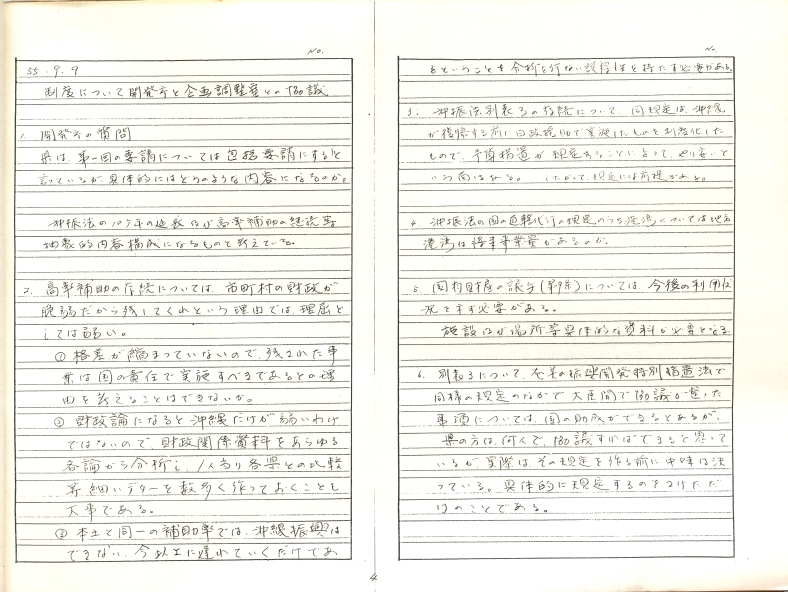 No.
55.9.9
制度について開発庁と企画調整室との協議
1. 開発庁の質問
県は、第一回の要請については包括要請にすると
言っているが、具体的にはどのような内容になるのか。
沖振法の10ヶ年の延長及び高率補助の継続等
抽象的内容構成になるものと考えている。
2. 高率補助の存続については、市町村の財政が
脆弱だから残してくれという理由では、理屈と
しては弱い。
① 格差が縮まっていないので、残された事
業は国の責任で実施すべきであるとの理
由を考えることはできないか。
② 財政論になると沖縄だけが弱いわけ
ではないので、財政関係資料をあらゆる
各論から分析し、1人当り各県との比較
等細いデーターを数多く作っておくことも
大事である。
③ 本土と同一の補助率では、沖縄振興は
できない、今以上に遅れていくだけであ
4
No.
るということを分析を行ない説得性を持たす必要がある。
3. 沖振法別表3の存続について、同規定は、沖縄
が復帰する前に日政援助で実施したものを制度化した
もので、予算措置が規定することによって、やり安いと
いう面はある。したがって、規定には前提がある。
4. 沖振法の国の直轄代行の規定のうち港湾については地方
港湾は将来事業量があるのか。
5. 国有財産の譲与(第9条)については、今後の利用状
況を示す必要がある。
施設及び場所等具体的な資料が必要となる。
6. 別表3について、奄美の振興開発特別措置法で
同様の規定のなかで大臣間で協議が整った
事項については、国の助成ができるとあるが、
県の方は、何んで、協議すればできると思って
いるが実際はその規定を作る前に中味は決
っている。具体的に規定するのをさけただ
けのことである。